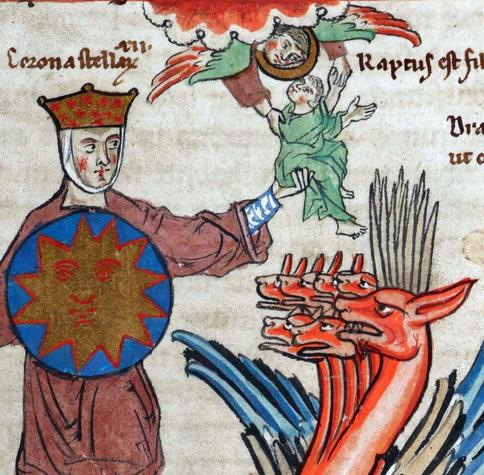 Corona stellar̄
xii.
Raptus est fil
Dra
ut c